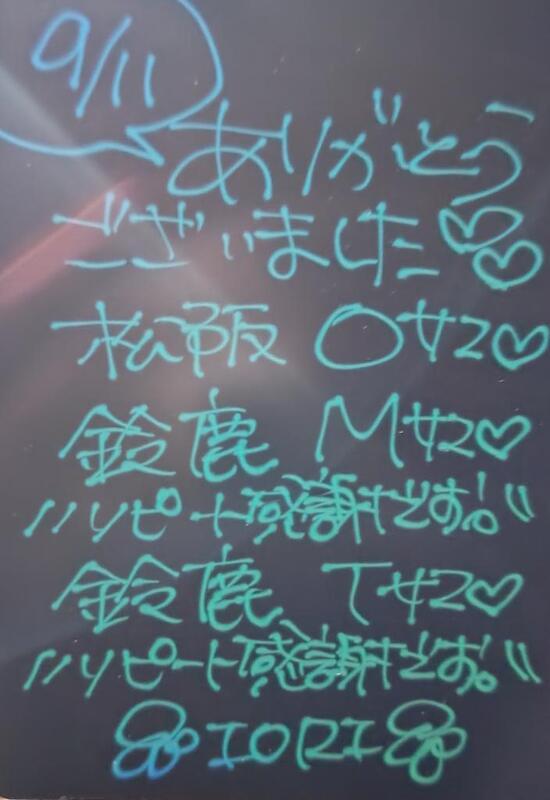 9/11
ありがとう
ございました♡♡
松阪 Oサマ♡
鈴鹿 Mサマ♡
\\リピート感謝です!!//
鈴鹿 Tサマ♡
\\リピート感謝です!!//
IORI